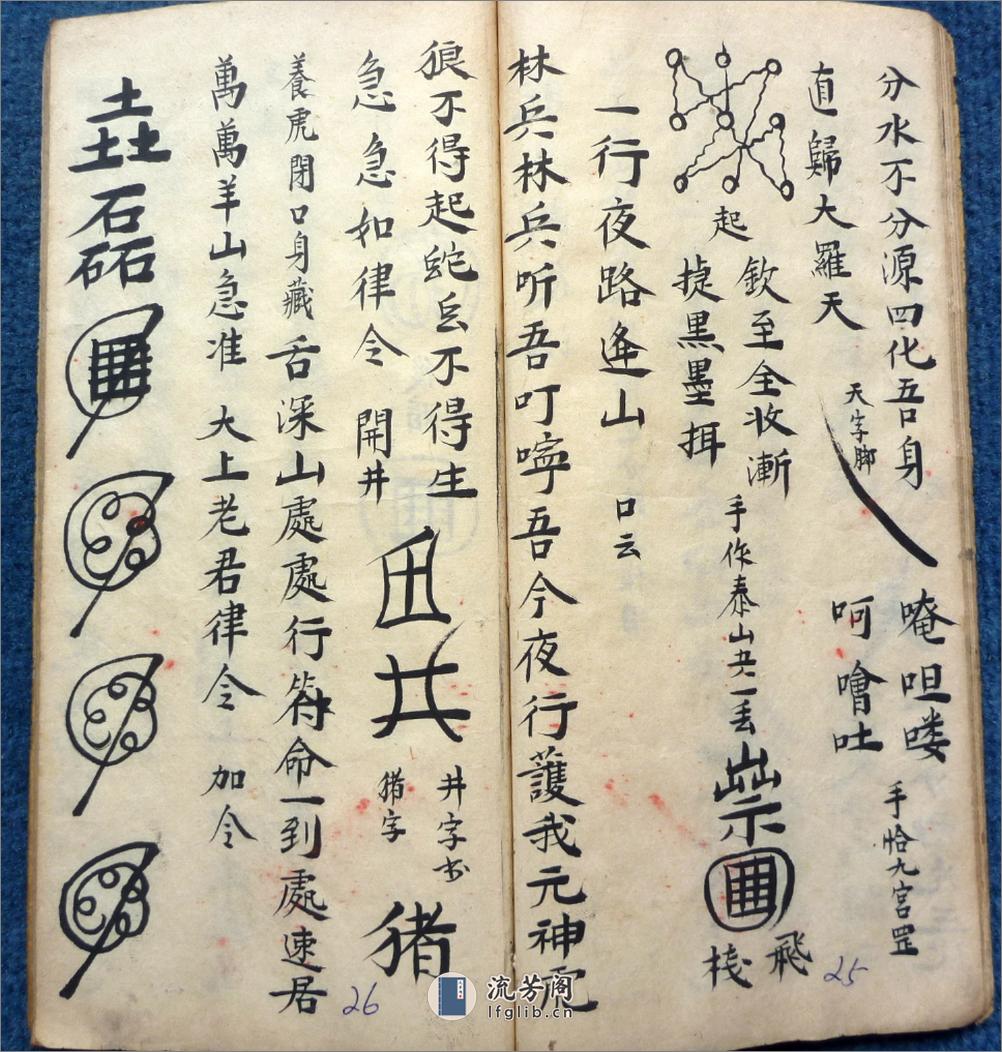 分水不分源四化吾身
天字脚
唵呾喽
呵噜吐
手恰九宫罡
直歸大羅天
起
欽至全收漸
捷黑墨挕
手作泰山共一丢
祟
飛
棧
一行夜路逢山
口云
林兵林兵听吾叮嚀吾今夜行護我元神虎
狼不得起蛇不得生
急急如律令
開井
井字书
猪字
猪
養虎閉口身藏舌深山處處行符命一到處速居
萬萬羊山急准
大上老君律令
加令
垚
石磊
25
26
流芳阁
lfglib.cn